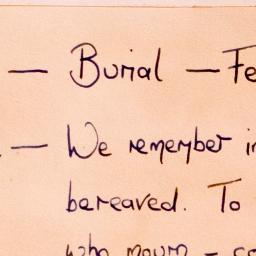 — Burial — Fe
— We remember in
bereaved. To
who mourn –